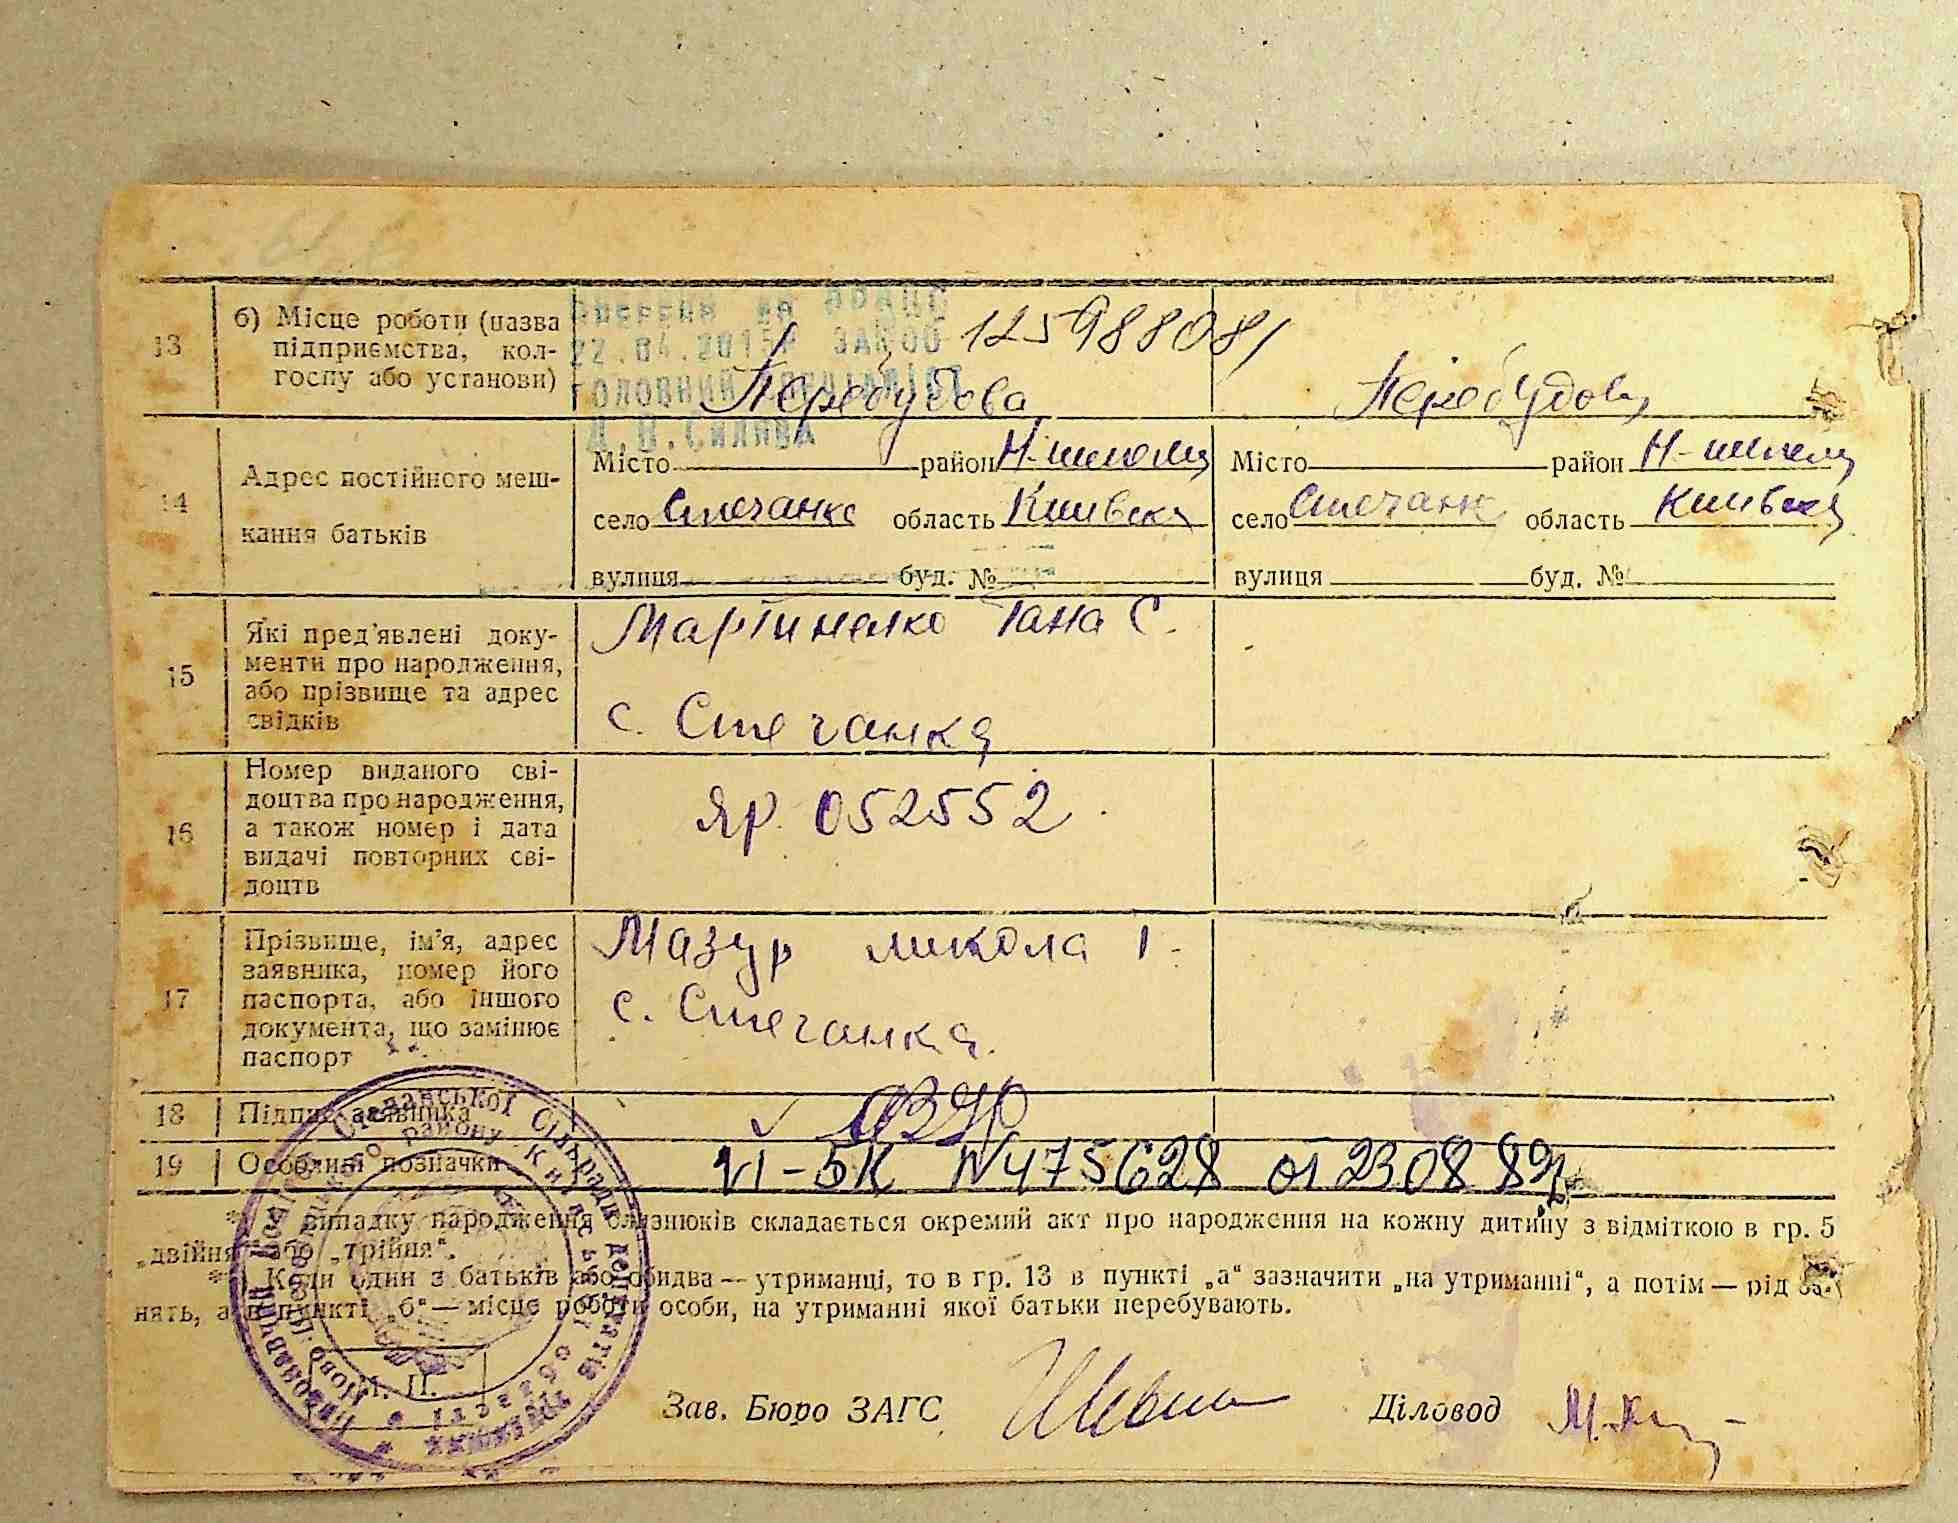 13
б) Місце роботи (назва
підприємства, кол-
госпу або установи)
22.04.2015р
головний спеціаліст
125988081
Перебудова
Перебудова
14
Адрес постійного меш-
кання батьків
Місто район
село Стечанка область Київська
вулиця буд. №
Місто район
село Стечанк область Київська
вулиця буд. №
15
Які пред'явлені доку-
менти про народження,
або прізвище та адрес
свідків
Мартиненко С.
с. Стечанка
16
Номер виданого сві-
доцтва про народження,
а також номер і дата
видачі повторних сві-
доцтв
ЯР. 052552.
17
Прізвище, ім'я, адрес
заявника, номер його
паспорта, або іншого
документа, що замінює
паспорт
Мазур микола І.
с. Стечанка.
18
Підпис заявника
19
Особливі позначки
VI-БК N475628 от 23 08 89г
* У випадку народження близнюків складається окремий акт про народження на кожну дитину з відміткою в гр. 5
„двійня“ або „трійня“.
** Коли один з батьків або обидва — утриманці, то в гр. 13 в пункті „а“ зазначити „на утриманні“, а потім — рід за-
нять, а в пункті „б“ — місце роботи особи, на утриманні якої батьки перебувають.
М. П.
Зав. Бюро ЗАГС
Діловод
Виконавчий Комітет Стечанської Сільради депутатів трудящих
Ново-Шепелицького району Київської області